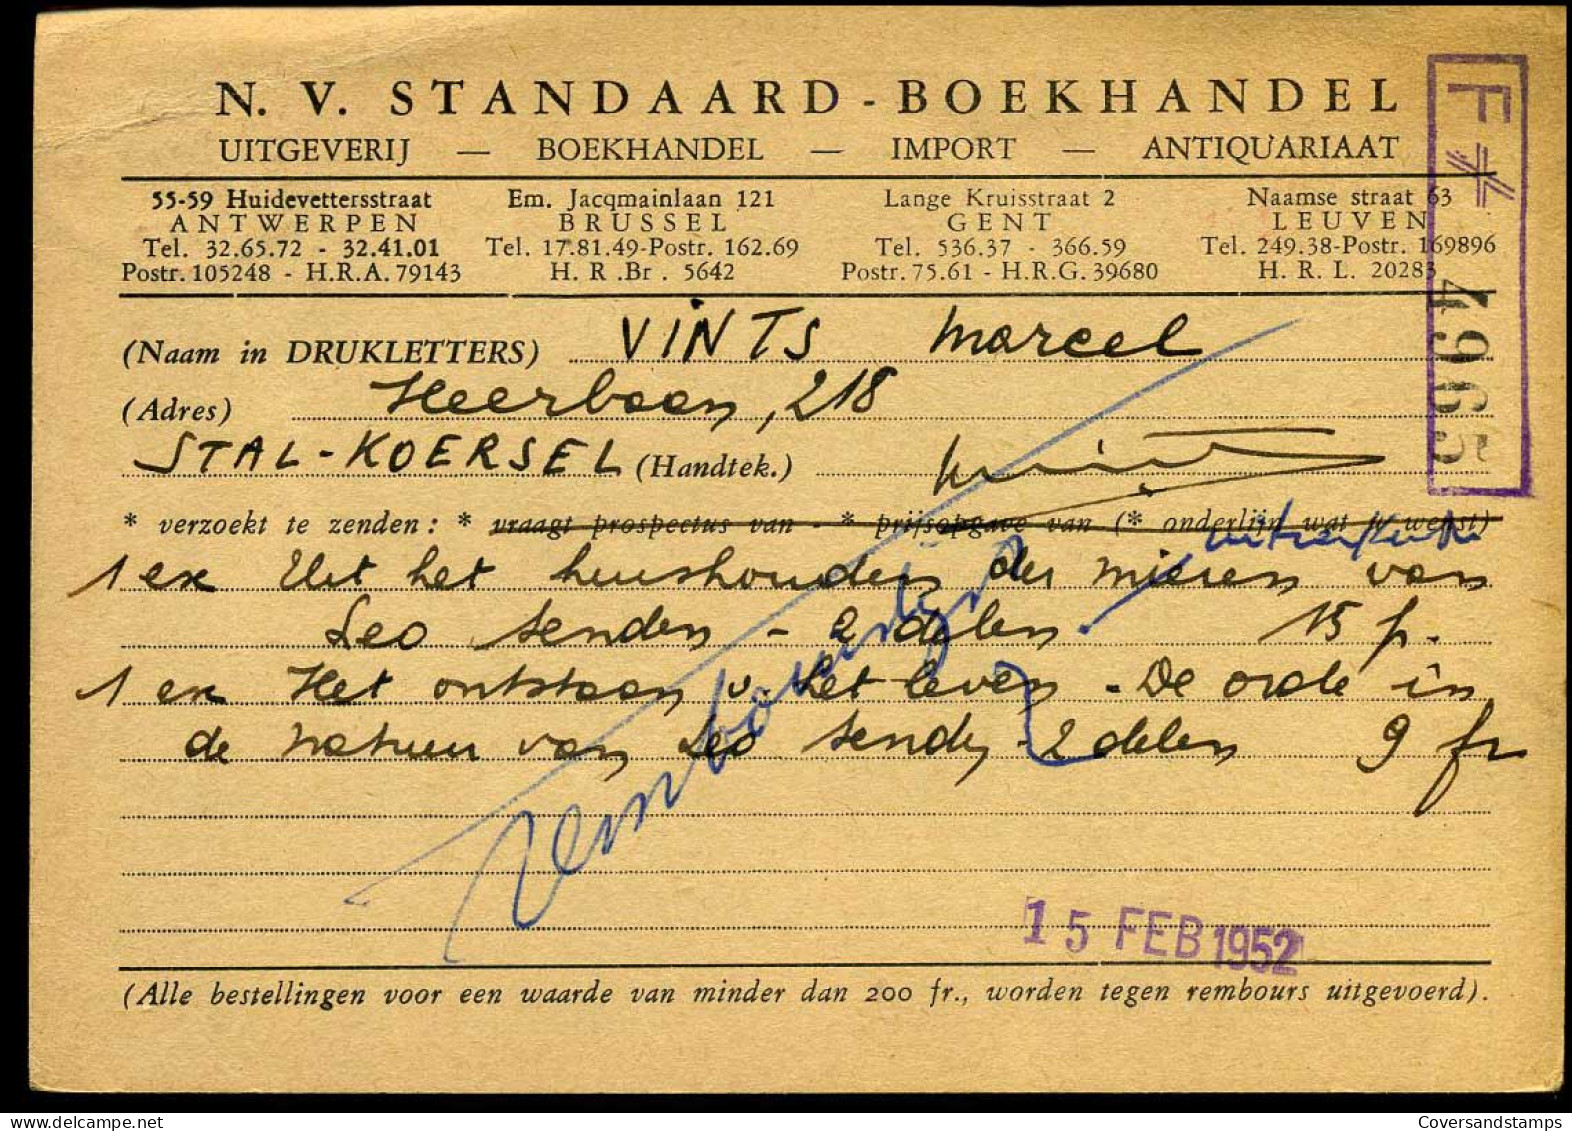 N. V. STANDAARD - BOEKHANDEL
UITGEVERIJ — BOEKHANDEL — IMPORT — ANTIQUARIAAT
55-59 Huidevettersstraat
ANTWERPEN
Tel. 32.65.72 - 32.41.01
Postr. 105248 - H.R.A. 79143
Em. Jacqmainlaan 121
BRUSSEL
Tel. 17.81.49-Postr. 162.69
H. R .Br . 5642
Lange Kruisstraat 2
GENT
Tel. 536.37 - 366.59
Postr. 75.61 - H.R.G. 39680
Naamse straat 63
LEUVEN
Tel. 249.38-Postr. 169896
H. R. L. 20283
F 4965
(Naam in DRUKLETTERS) VINTS Marcel
(Adres) Heerbaan, 218
STAL-KOERSEL (Handtek.)
* verzoekt te zenden : * vraagt prospectus van - * prijsopgave van (* onderlijn wat u wenst)
uitverkocht
1 ex Uit het huishouden der mieren van
Leo Senden - 2 delen 15 fr.
1 ex Het ontstaan v. het leven - De orde in
de natuur van Leo Senden - 2 delen 9 fr
15 FEB 1952
(Alle bestellingen voor een waarde van minder dan 200 fr., worden tegen rembours uitgevoerd).
CoversandStamps